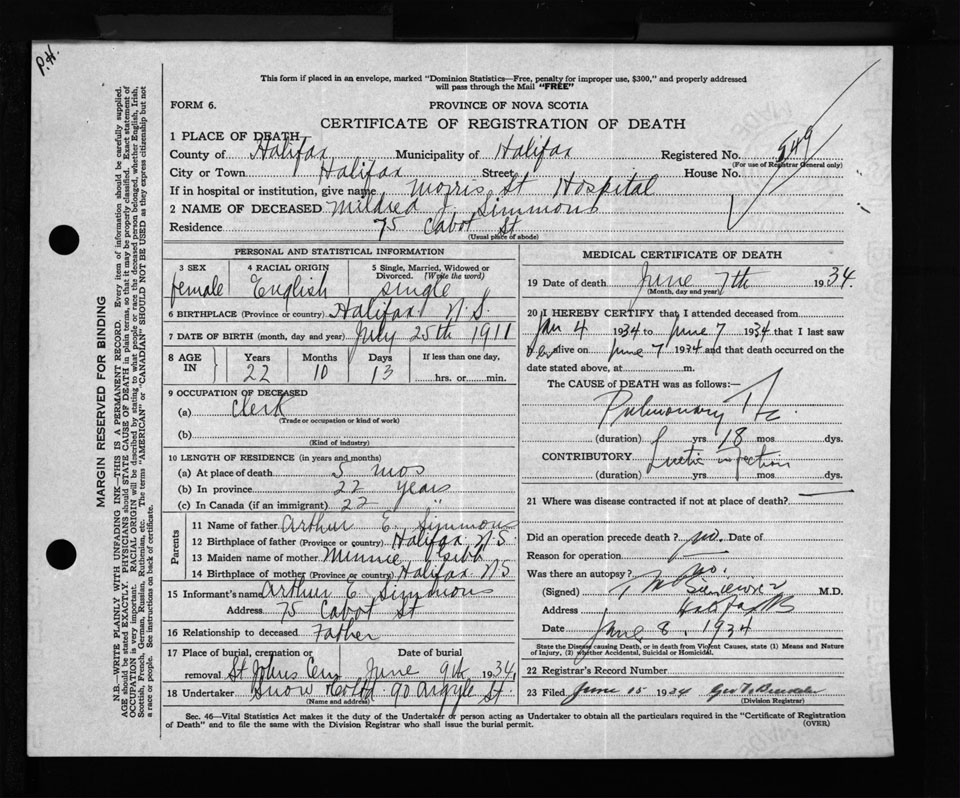 P.H.
This form if placed in an envelope, marked "Dominion Statistics—Free, penalty for improper use, $300," and properly addressed
will pass through the Mail "FREE"
FORM 6.
PROVINCE OF NOVA SCOTIA
CERTIFICATE OF REGISTRATION OF DEATH
1 PLACE OF DEATH
County of Halifax Municipality of Halifax Registered No. 549
(For use of Registrar General only)
City or Town Halifax Street House No.
If in hospital or institution, give name Morris St Hospital
2 NAME OF DECEASED Mildred J. Simmons
Residence 75 Cabot St
(Usual place of abode)
PERSONAL AND STATISTICAL INFORMATION
3 SEX 4 RACIAL ORIGIN 5 Single, Married, Widowed or
Divorced. (Write the word)
female English single
6 BIRTHPLACE (Province or country) Halifax N.S.
7 DATE OF BIRTH (month, day and year) July 25th 1911
8 AGE IN Years Months Days If less than one day,
22 10 13 hrs. or min.
9 OCCUPATION OF DECEASED
(a) Clerk
(Trade or occupation or kind of work)
(b)
(Kind of industry)
10 LENGTH OF RESIDENCE (in years and months)
(a) At place of death 5 mos
(b) In province 22 years
(c) In Canada (if an immigrant) 22 "
Parents
11 Name of father Arthur E. Simmons
12 Birthplace of father (Province or country) Halifax N.S.
13 Maiden name of mother Minnie
14 Birthplace of mother (Province or country) Halifax NS
15 Informant's name Arthur E Simmons
Address 75 Cabot St
16 Relationship to deceased Father
17 Place of burial, cremation or Date of burial
removal St Johns Cem June 9th 1934
18 Undertaker Snow & Co Ltd. 90 Argyle St.
(Name and address)
MEDICAL CERTIFICATE OF DEATH
19 Date of death June 7th 1934
(Month, day and year)
20 I HEREBY CERTIFY that I attended deceased from
Jan 4 1934 to June 7 1934 that I last saw
her alive on June 7 1934 and that death occurred on the
date stated above, at m.
The CAUSE of DEATH was as follows:—
Pulmonary Tbc
(duration) yrs 18 mos dys.
CONTRIBUTORY Luetic infection
(duration) yrs mos dys.
21 Where was disease contracted if not at place of death? —
Did an operation precede death? no. Date of
Reason for operation —
Was there an autopsy? no.
(Signed) M.D.
Address Halifax NS
Date June 8, 1934
State the Disease causing Death, or in death from Violent Causes, state (1) Means and Nature
of Injury, (2) whether Accidental, Suicidal or Homicidal.
22 Registrar's Record Number
23 Filed June 15 1934
(Division Registrar)
Sec. 46—Vital Statistics Act makes it the duty of the Undertaker or person acting as Undertaker to obtain all the particulars required in the "Certificate of Registration
of Death" and to file the same with the Division Registrar who shall issue the burial permit. (OVER)
MARGIN RESERVED FOR BINDING
N.B.—WRITE PLAINLY WITH UNFADING INK—THIS IS A PERMANENT RECORD. Every item of information should be carefully supplied.
AGE should be stated EXACTLY. PHYSICIANS should STATE CAUSE OF DEATH in plain terms, so that it may be properly classified. Exact statement of
OCCUPATION is very important. RACIAL ORIGIN will be described by stating to what people or race the deceased person belonged, whether English, Irish,
Scottish, French, German, Russian, Ruthenian, etc. The terms "AMERICAN" or "CANADIAN" SHOULD NOT BE USED as they express citizenship but not
a race or people. See instructions on back of certificate.